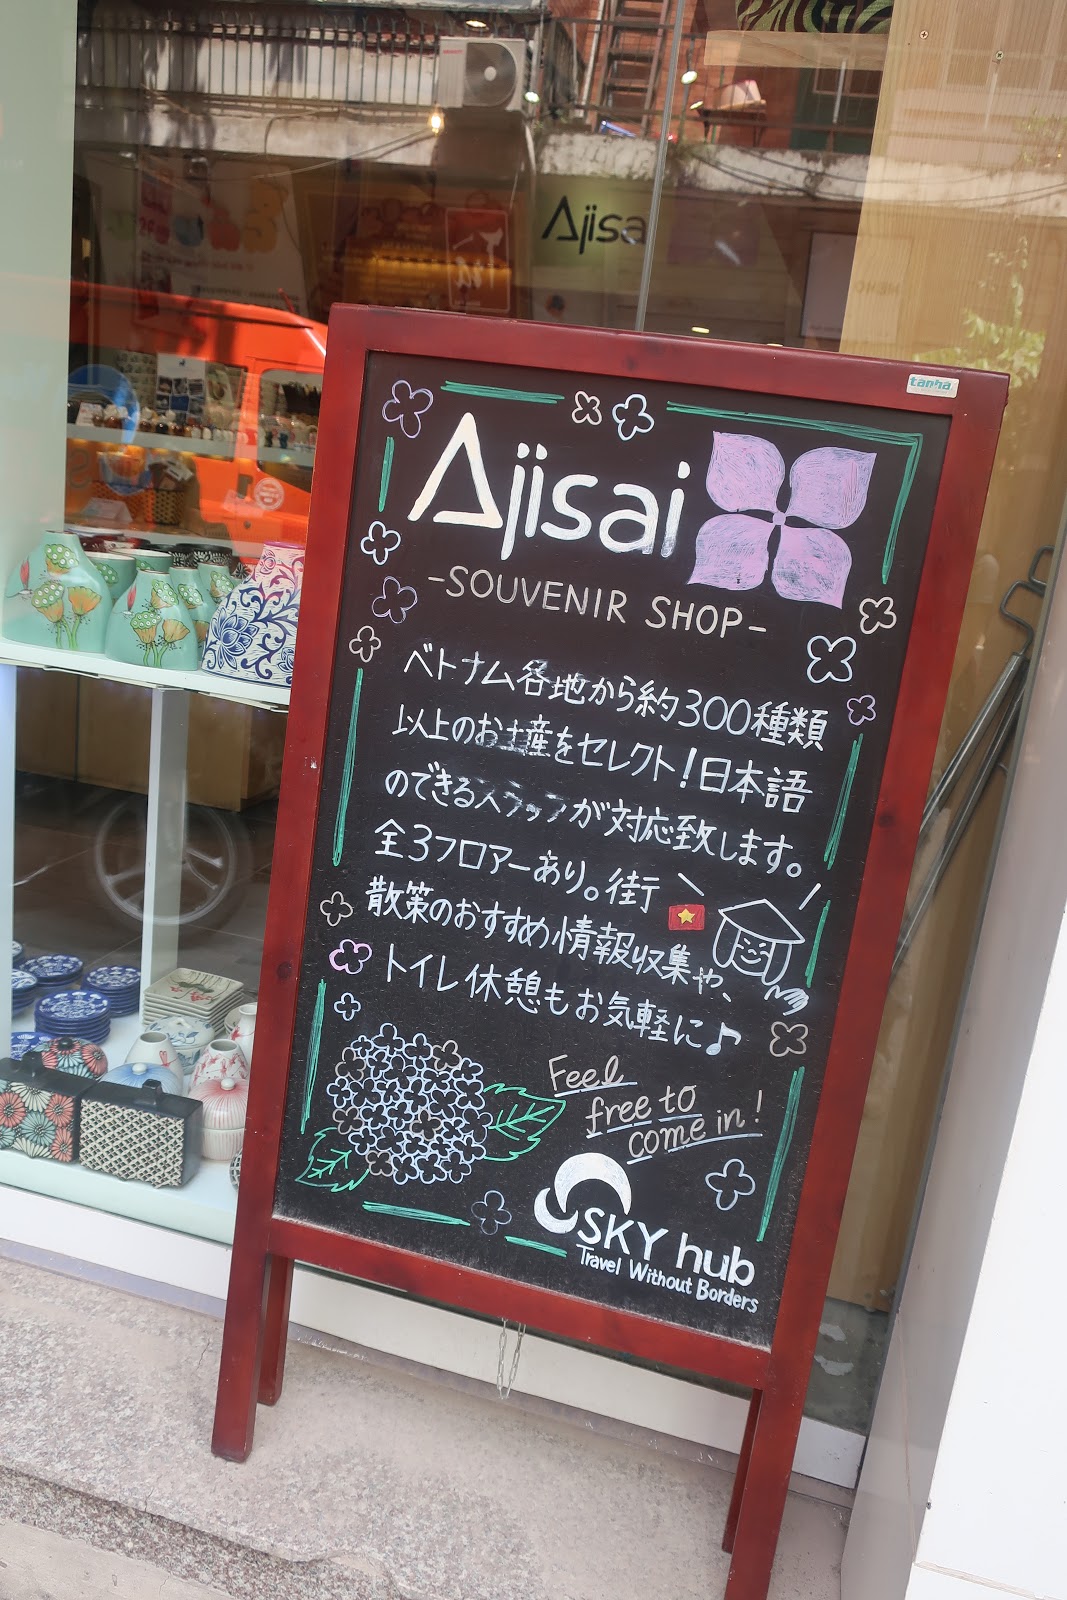 Ajisa
tanha
Ajisai
-SOUVENIR SHOP-
ベトナム各地から約300種類
以上のお土産をセレクト!日本語
のできるスタッフが対応致します。
全3フロアーあり。街
散策のおすすめ情報収集や、
トイレ休憩もお気軽に♪
Feel
free to
come in!
SKY hub
Travel Without Borders